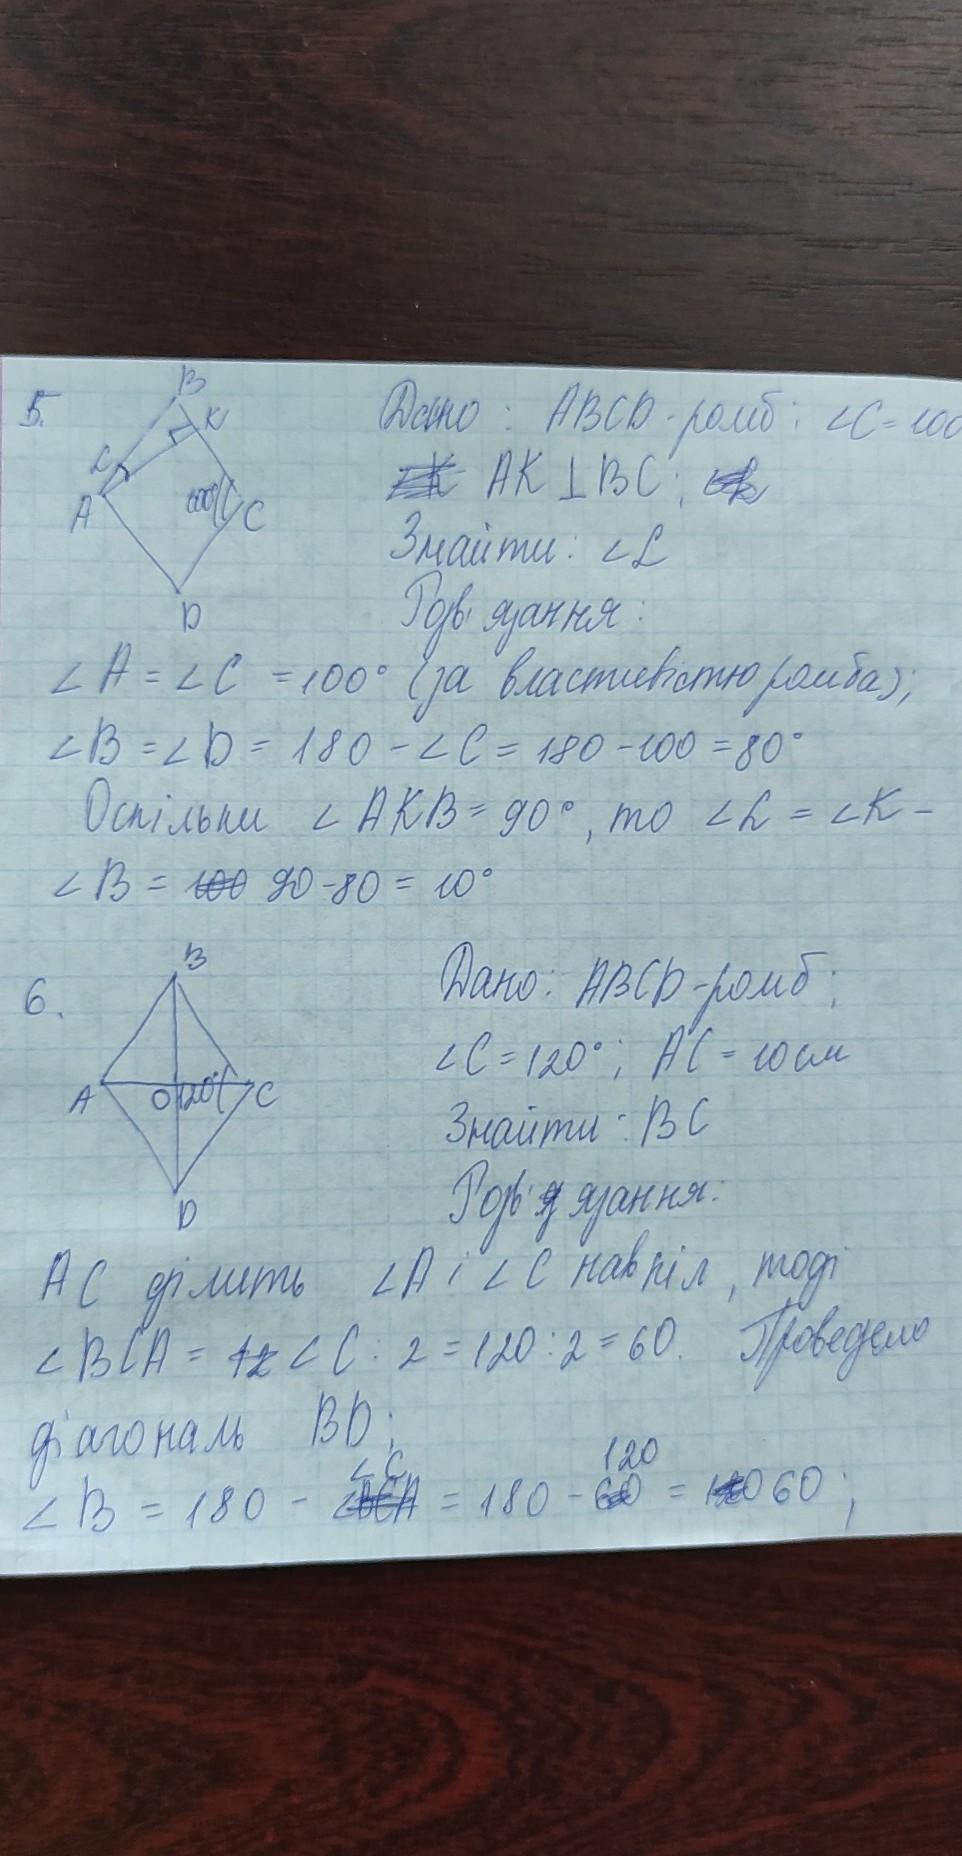 5.
B
K
L
A
100°
C
D
Дано: ABCD-ромб; ∠C=100
AK⊥BC;
Знайти: ∠L
Розв'язання:
∠A = ∠C = 100° (за властивістю ромба);
∠B = ∠D = 180 - ∠C = 180 - 100 = 80°
Оспільки ∠AKB = 90°, то ∠L = ∠K -
∠B = 90 - 80 = 10°
6.
B
A
O
120°
C
D
Дано: ABCD-ромб;
∠C = 120°; AC = 10см
Знайти: BC
Розв'язання:
AC ділить ∠A і ∠C навпіл, тоді
∠BCA = ∠C : 2 = 120 : 2 = 60. Проведемо
діагональ BD;
∠B = 180 - ∠C = 180 - 120 = 60;